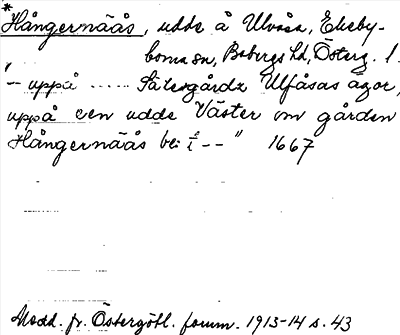 * Hångernäås, udde å Ulvåsa, Ekeby-
borna sn, Bobergs hd, Österg. l.
"– uppå ..... Sätesgårdz Ulfåsas ägor,
uppå een udde Väster om gården
Hångernäås be: – – " 1667
Medd. fr. Östergötl. fornm. 1913-14 s. 43